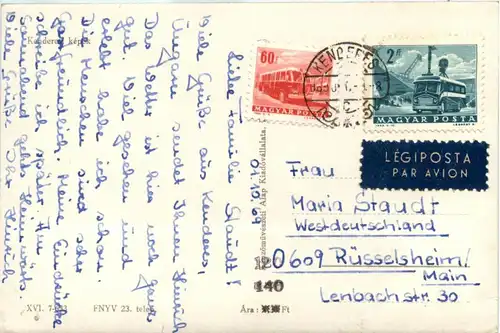 Kenderesi képek
Liebe Familie Staudt!
01.10.69
Viele Grüße aus Kenderes,
Ungarn sendet Ihnen Hinrich
Das Wetter ist hier noch ganz
gut. Viel gesehen und
erlebt habe ich schon.
Die Menschen sind sehr
Gastfreundlich. Meine Eindrücke
schreibe ich später. Am
Sonnabend gehts Heimwärts.
Viele Grüße Ihr Hinrich
XVI.
FNYV 23. telep
Képzőművészeti Alap Kiadóvállalata,
Ára : Ft
140
60f
MAGYAR POSTA
KENDERES
2 Ft
MAGYAR POSTA
LÉGIPOSTA
PAR AVION
Frau
Maria Staudt
Westdeutschland
D609 Rüsselsheim/
Main
Lenbachstr. 30